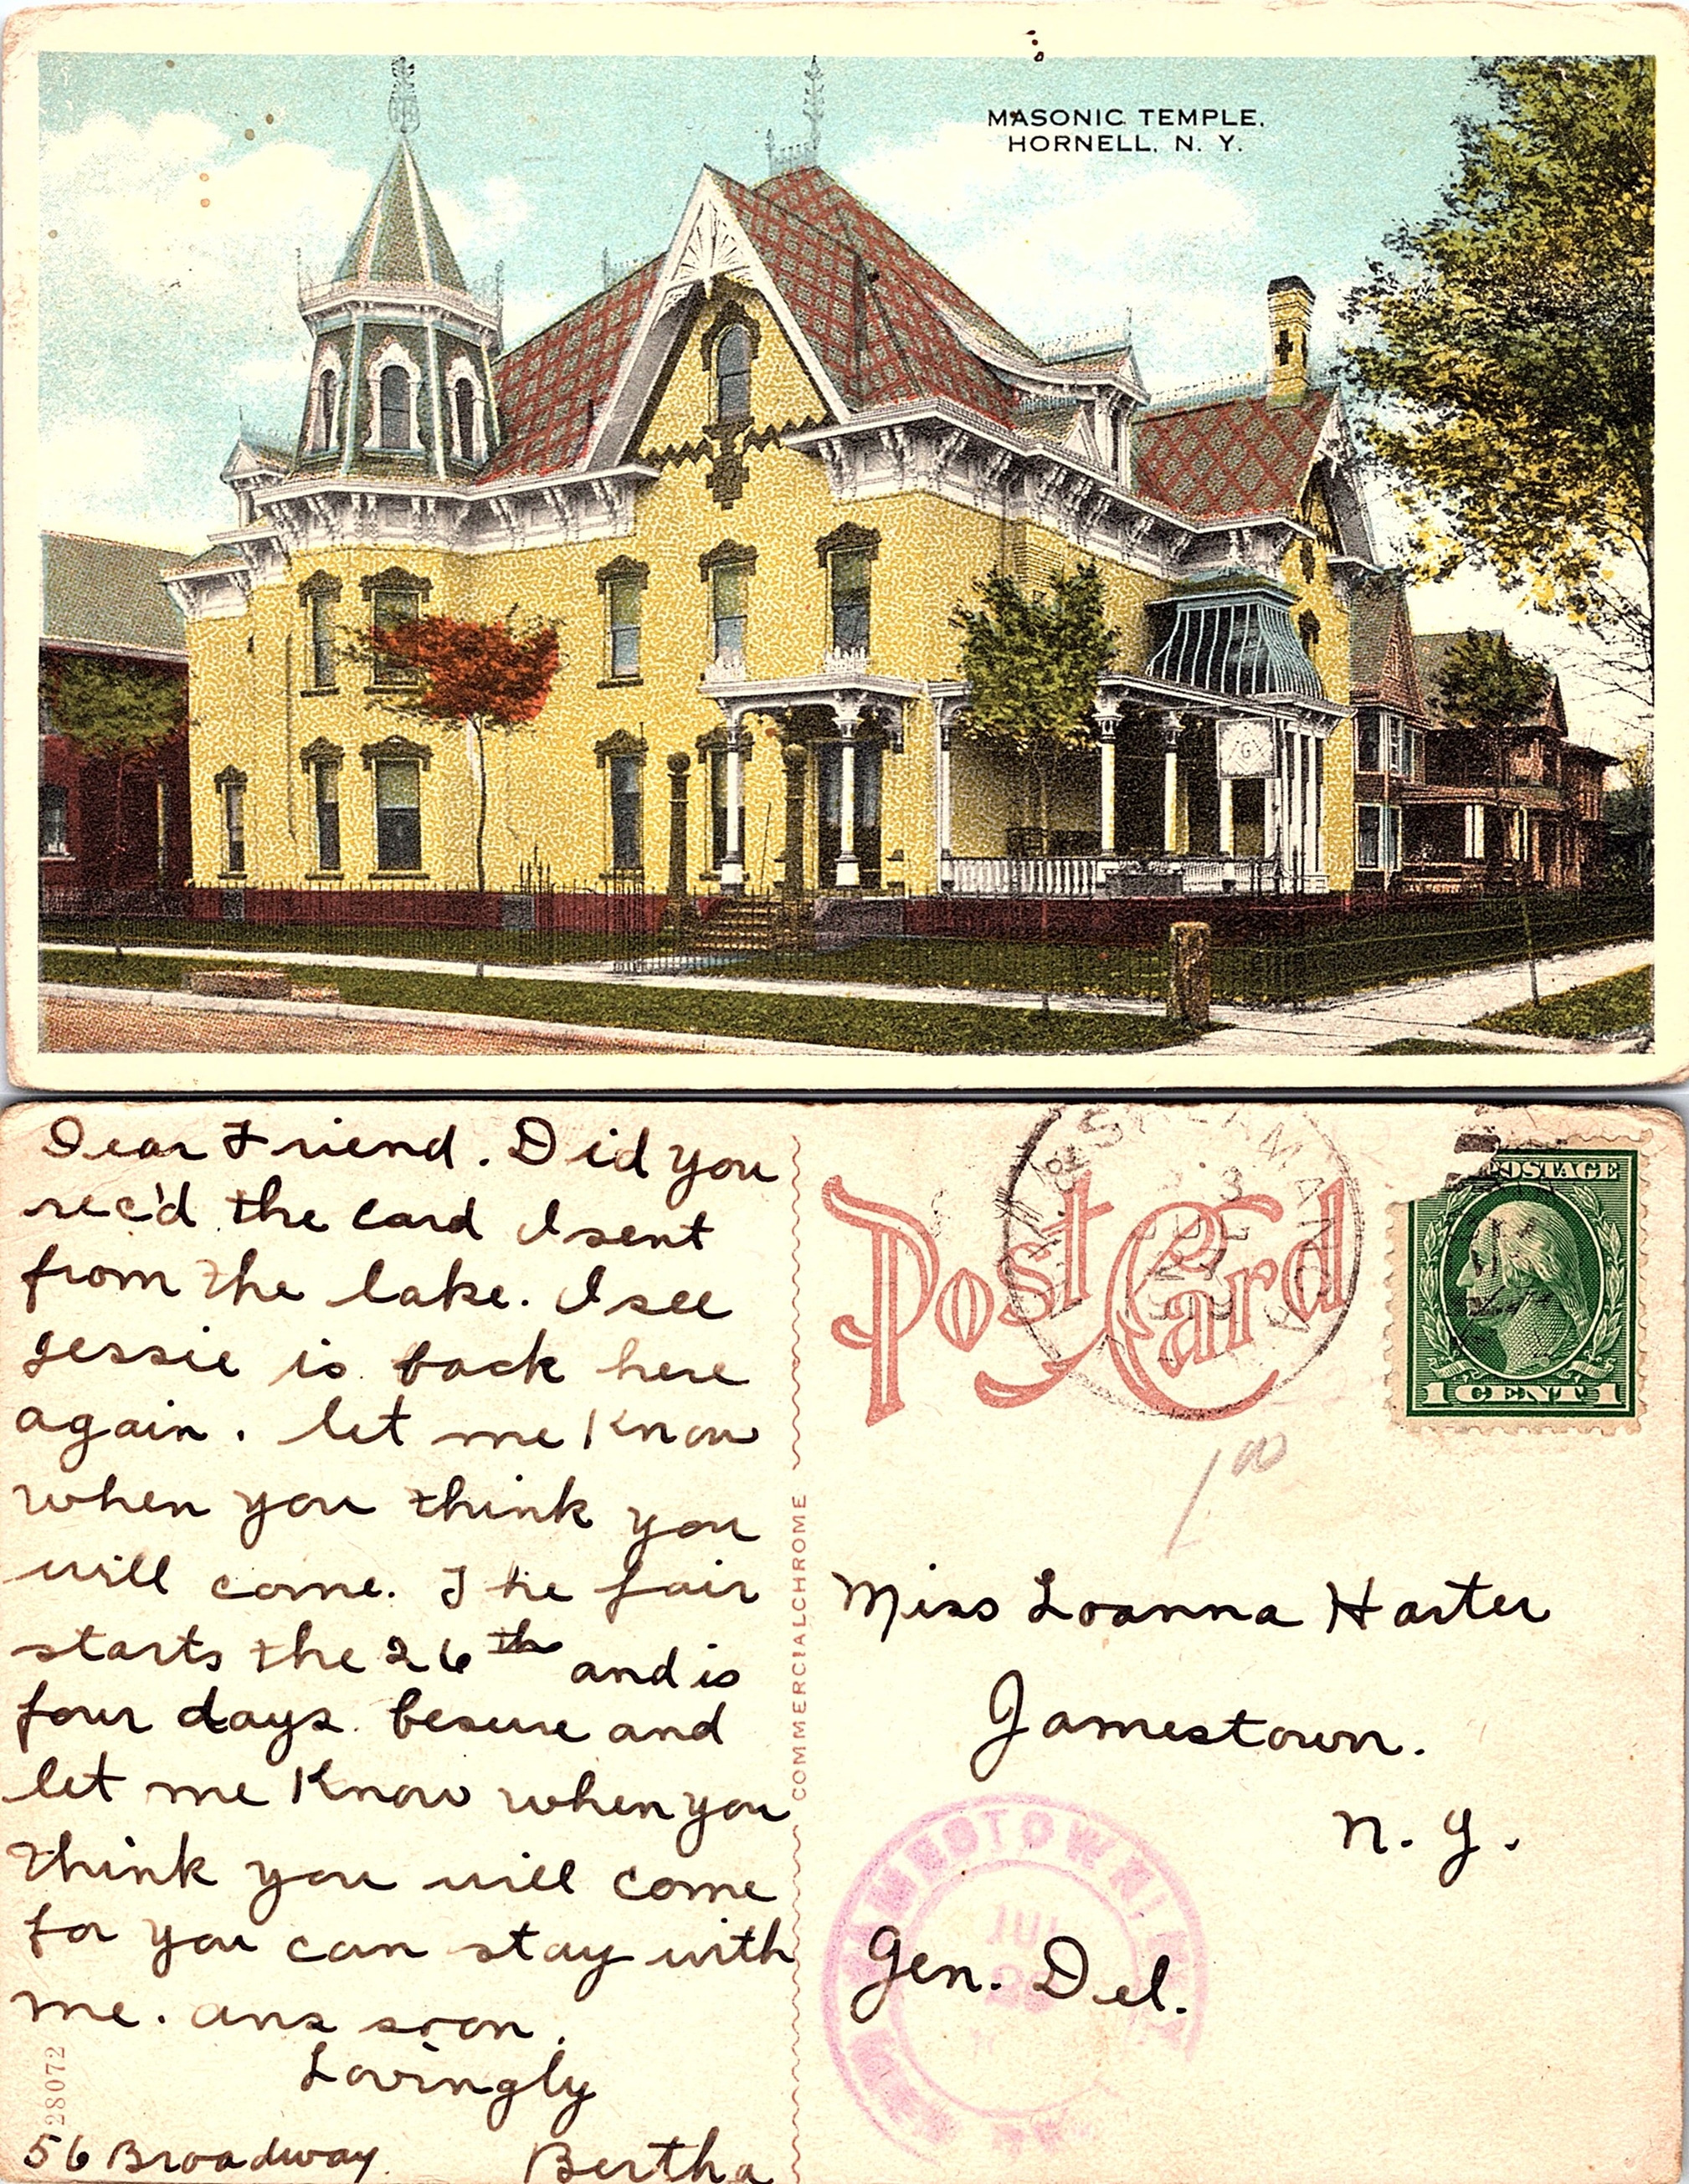 MASONIC TEMPLE.
HORNELL, N. Y.
G
Dear Friend. Did you
rec'd the card I sent
from the lake. I see
Jessie is back here
again. let me Know
when you think you
will come. The fair
starts the 26th and is
four days. besure and
let me Know when you
think you will come
for you can stay with
me. ans soon.
Lovingly
56 Broadway. Bertha
288072
COMMERCIALCHROME
Post Card
JUL
POSTAGE
1 CENT 1
1 00
Miss Loanna Harter
Jamestown.
N. Y.
Gen. Del.
JAMESTOWN
JUL